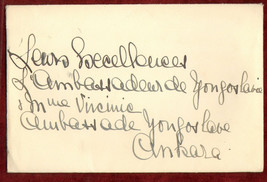 Leurs Excellences
L'Ambassadeur de Yougoslavie
& Mme Vicinie
Ambassade Yougoslave
Ankara